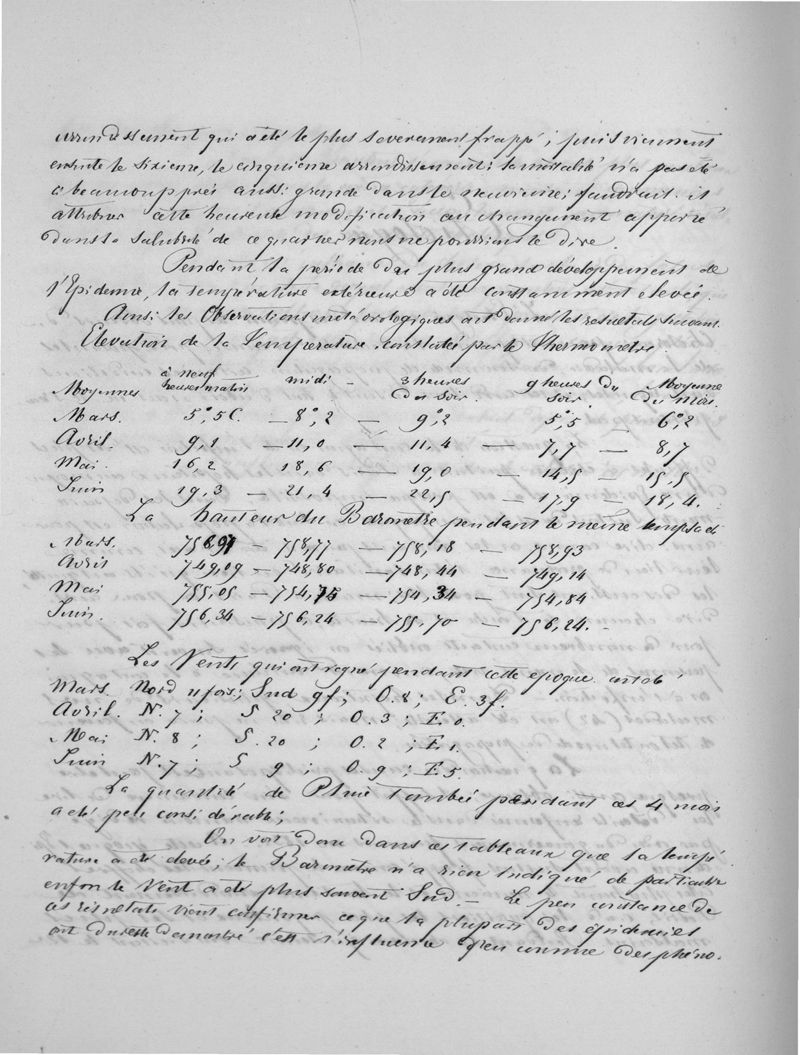 arrondissement qui a été le plus severement frappé; puis viennent
ensuite le sixieme, le cinquieme arrondissement; la mortalité n'a pas été
a beaucoup près aussi grande dans le neuvieme; faudrait-il
attribuer cette heureuse modification au changement apporté
dans la salubrité de ce quartier nous ne pourrions le dire.
Pendant la période du plus grand développement de
l'Epidemie, la température extérieure a été constamment elevée.
Ainsi les Observations météorologiques ont donné les resultats suivant.
Elevation de la Temperature constatée par le Thermomètre.
Moyennes à neuf heures matin midi - 3 heures du soir. 9 heures du soir. Moyenne du mois.
Mars. 5°,5 C. - 8°,2 - 9°,2 5°,5 - 6°,2
Avril. 9,1 - 11,0 - 11,4 - 7,7 - 8,7
Mai 16,2 18,6 - 19,0 - 14,5 - 15,5
Juin 19,3 - 21,4 - 22,5 - 17,9 - 18,4.
La hauteur du Baromètre pendant le meme temps a été
Mars. 758,97 - 758,77 - 758,18 - 758,93
Avril 749,09 - 748,80 - 748,44 - 749,14
Mai 755,05 - 754,74 - 754,34 - 754,84
Juin. 756,34 - 756,24 - 755,70 - 756,24. -
Les Vents qui ont regné pendant cette epoque ont été
Mars Nord 11 fois; Sud 9 f; O. 8; E. 3 f.
Avril. N. 7; S 20; O. 3; E. 0.
Mai N. 8; S. 20; O. 2; E 1.
Juin N. 7; S 9; O. 9; E 5.
La quantité de Pluie tombée pendant ces 4 mois
a été peu considérable;
On voit donc dans ces tableaux que la tempé
rature a été elevée; le Baromètre n'a rien indiqué de particulier
enfin le Vent a été plus souvent Sud. - Le peu constance de
ces résultats vient confirmer ce que la plupart des épidemies
ont du reste demontré c'est l'influence peu connue des phéno.